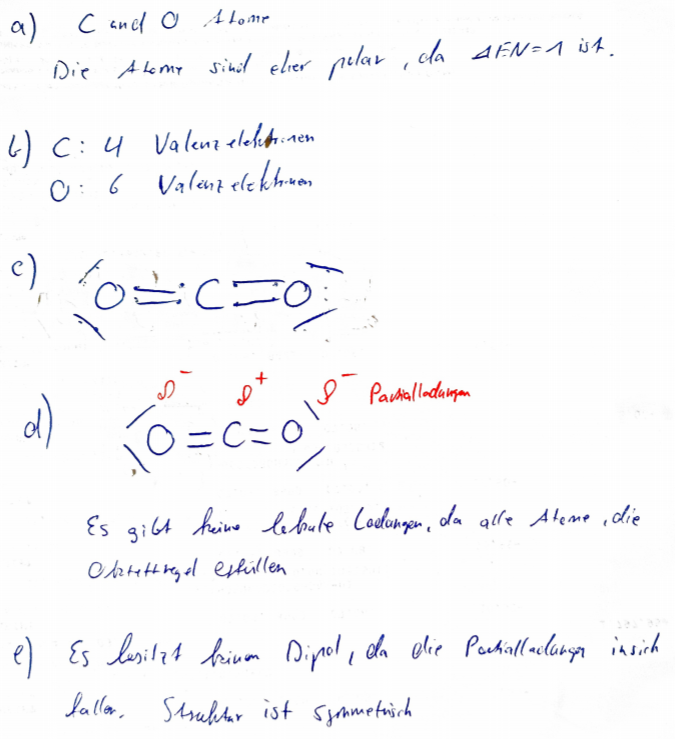 a) C und O Atome
Die Atome sind eher polar, da ΔEN=1 ist.
b) C: 4 Valenzelektronen
O: 6 Valenzelektronen
c) O=C=O
d) δ⁻ δ⁺ δ⁻ Partialladungen
O=C=O
Es gibt keine Ladungen, da alle Atome, die
Oktettregel erfüllen
e) Es besitzt keinen Dipol, da die Partialladungen in sich
fallen. Struktur ist symmetrisch